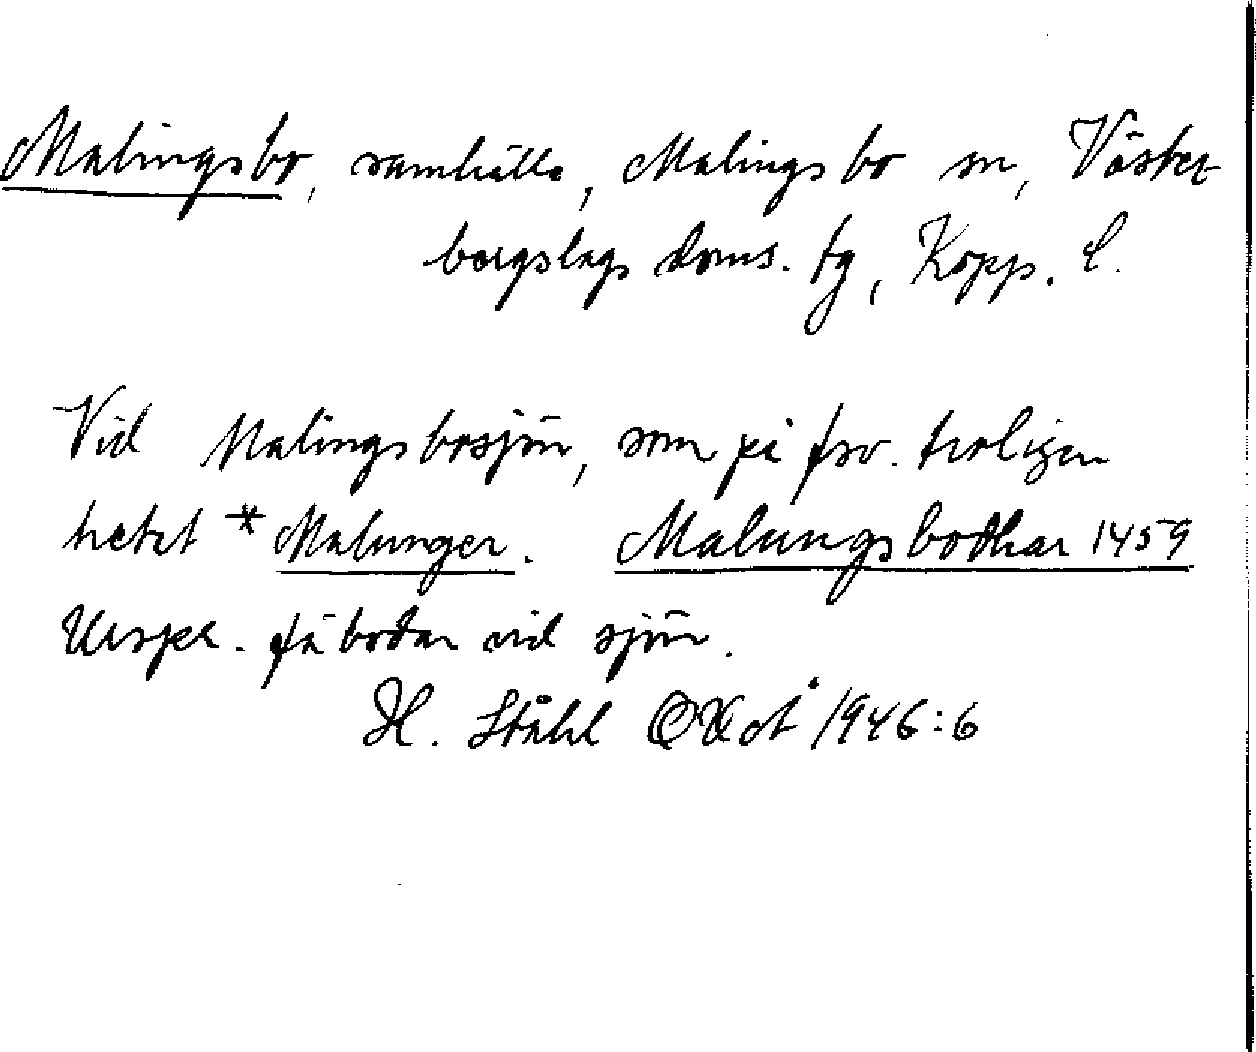 Malingsbo, samhälle, Malingsbo sn, Väster-
bergslags doms. tg, Kopp. l.
Vid Malingsbosjön, som på fsv. troligen
hetat *Malunger. Malungsbodhar 1459
Urspr. fäbodar vid sjön.
H. Ståhl 1946:6